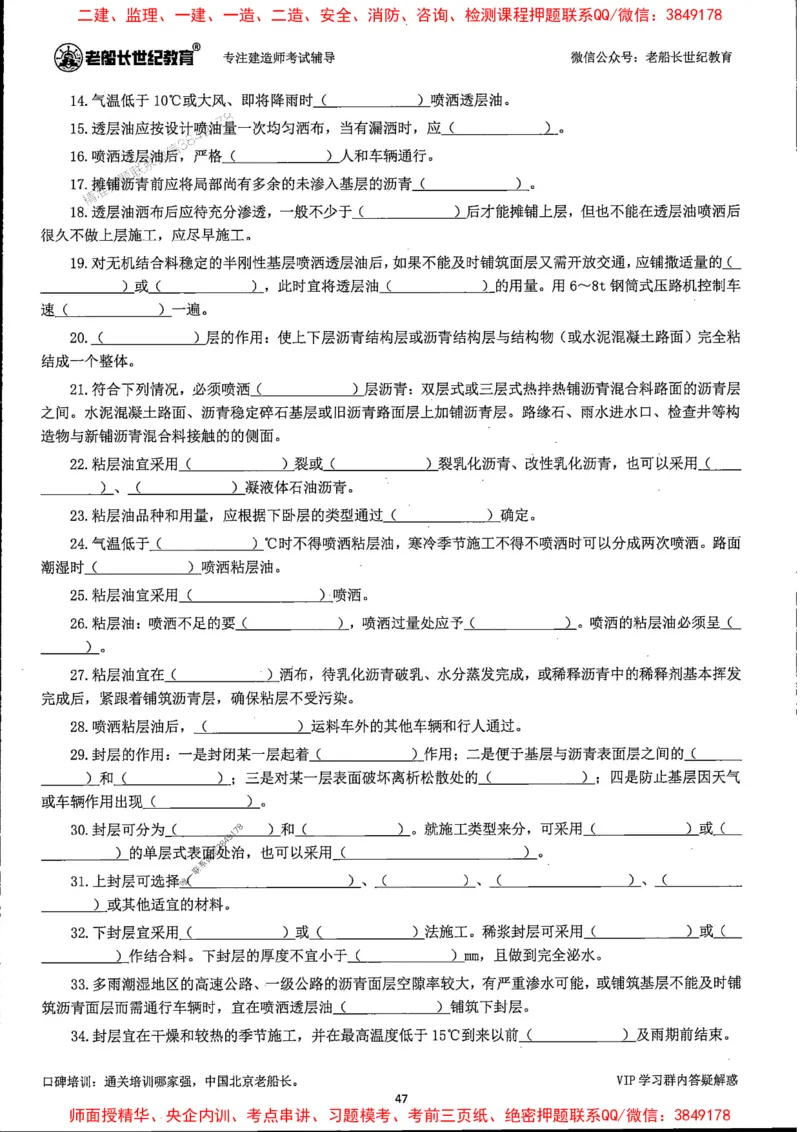 二建、监理、一建、一造、二造、安全、消防、咨询、检测课程押题联系QQ/微信：3849178
老船长世纪教育® 专注建造师考试辅导 微信公众号：老船长世纪教育
14.气温低于 10℃或大风、即将降雨时（ ）喷洒透层油。
15.透层油应按设计喷油量一次均匀洒布，当有漏洒时，应（ ）。
16.喷洒透层油后，严格（ ）人和车辆通行。
17.摊铺沥青前应将局部尚有多余的未渗入基层的沥青（ ）。
18.透层油洒布后应待充分渗透，一般不少于（ ）后才能摊铺上层，但也不能在透层油喷洒后
很久不做上层施工，应尽早施工。
19.对无机结合料稳定的半刚性基层喷洒透层油后，如果不能及时铺筑面层又需开放交通，应铺撒适量的（
）或（ ），此时宜将透层油（ ）的用量。用 6～8t 钢筒式压路机控制车
速（ ）一遍。
20.（ ）层的作用：使上下层沥青结构层或沥青结构层与结构物（或水泥混凝土路面）完全粘
结成一个整体。
21.符合下列情况，必须喷洒（ ）层沥青：双层式或三层式热拌热铺沥青混合料路面的沥青层
之间。水泥混凝土路面、沥青稳定碎石基层或旧沥青路面层上加铺沥青层。路缘石、雨水进水口、检查井等构
造物与新铺沥青混合料接触的的侧面。
22.粘层油宜采用（ ）裂或（ ）裂乳化沥青、改性乳化沥青，也可以采用（
）、（ ）凝液体石油沥青。
23.粘层油品种和用量，应根据下卧层的类型通过（ ）确定。
24.气温低于（ ）℃时不得喷洒粘层油，寒冷季节施工不得不喷洒时可以分成两次喷洒。路面
潮湿时（ ）喷洒粘层油。
25.粘层油宜采用（ ）喷洒。
26.粘层油：喷洒不足的要（ ），喷洒过量处应予（ ）。喷洒的粘层油必须呈（
）。
27.粘层油宜在（ ）洒布，待乳化沥青破乳、水分蒸发完成，或稀释沥青中的稀释剂基本挥发
完成后，紧跟着铺筑沥青层，确保粘层不受污染。
28.喷洒粘层油后，（ ）运料车外的其他车辆和行人通过。
29.封层的作用：一是封闭某一层起着（ ）作用；二是便于基层与沥青表面层之间的（
）和（ ）；三是对某一层表面破坏离析松散处的（ ）；四是防止基层因天气
或车辆作用出现（ ）。
30.封层可分为（ ）和（ ）。就施工类型来分，可采用（ ）或（
）的单层式表面处治，也可以采用（ ）。
31.上封层可选择（ ）、（ ）、（ ）、（
）或其他适宜的材料。
32.下封层宜采用（ ）或（ ）法施工。稀浆封层可采用（ ）或（
）作结合料。下封层的厚度不宜小于（ ）mm，且做到完全泌水。
33.多雨潮湿地区的高速公路、一级公路的沥青面层空隙率较大，有严重渗水可能，或铺筑基层不能及时铺
筑沥青面层而需通行车辆时，宜在喷洒透层油（ ）铺筑下封层。
34.封层宜在干燥和较热的季节施工，并在最高温度低于 15℃到来以前（ ）及雨期前结束。
口碑培训：通关培训哪家强，中国北京老船长。 VIP 学习群内答疑解惑
47
师面授精华、央企内训、考点串讲、习题模考、考前三页纸、绝密押题联系QQ/微信：3849178